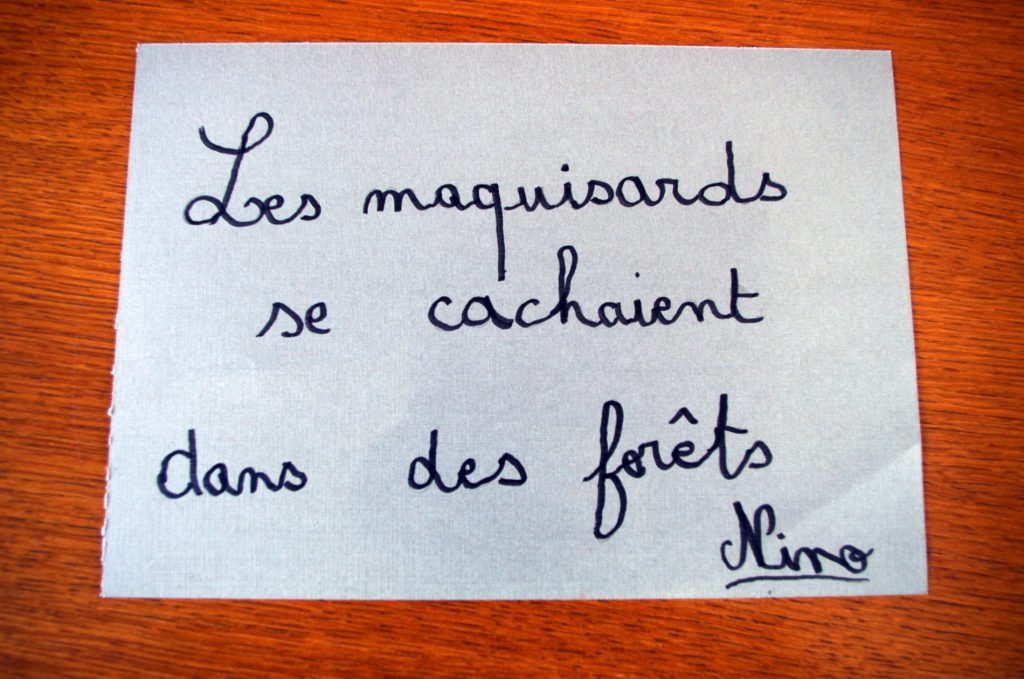 Les maquisards
se cachaient
dans des forêts
Nino